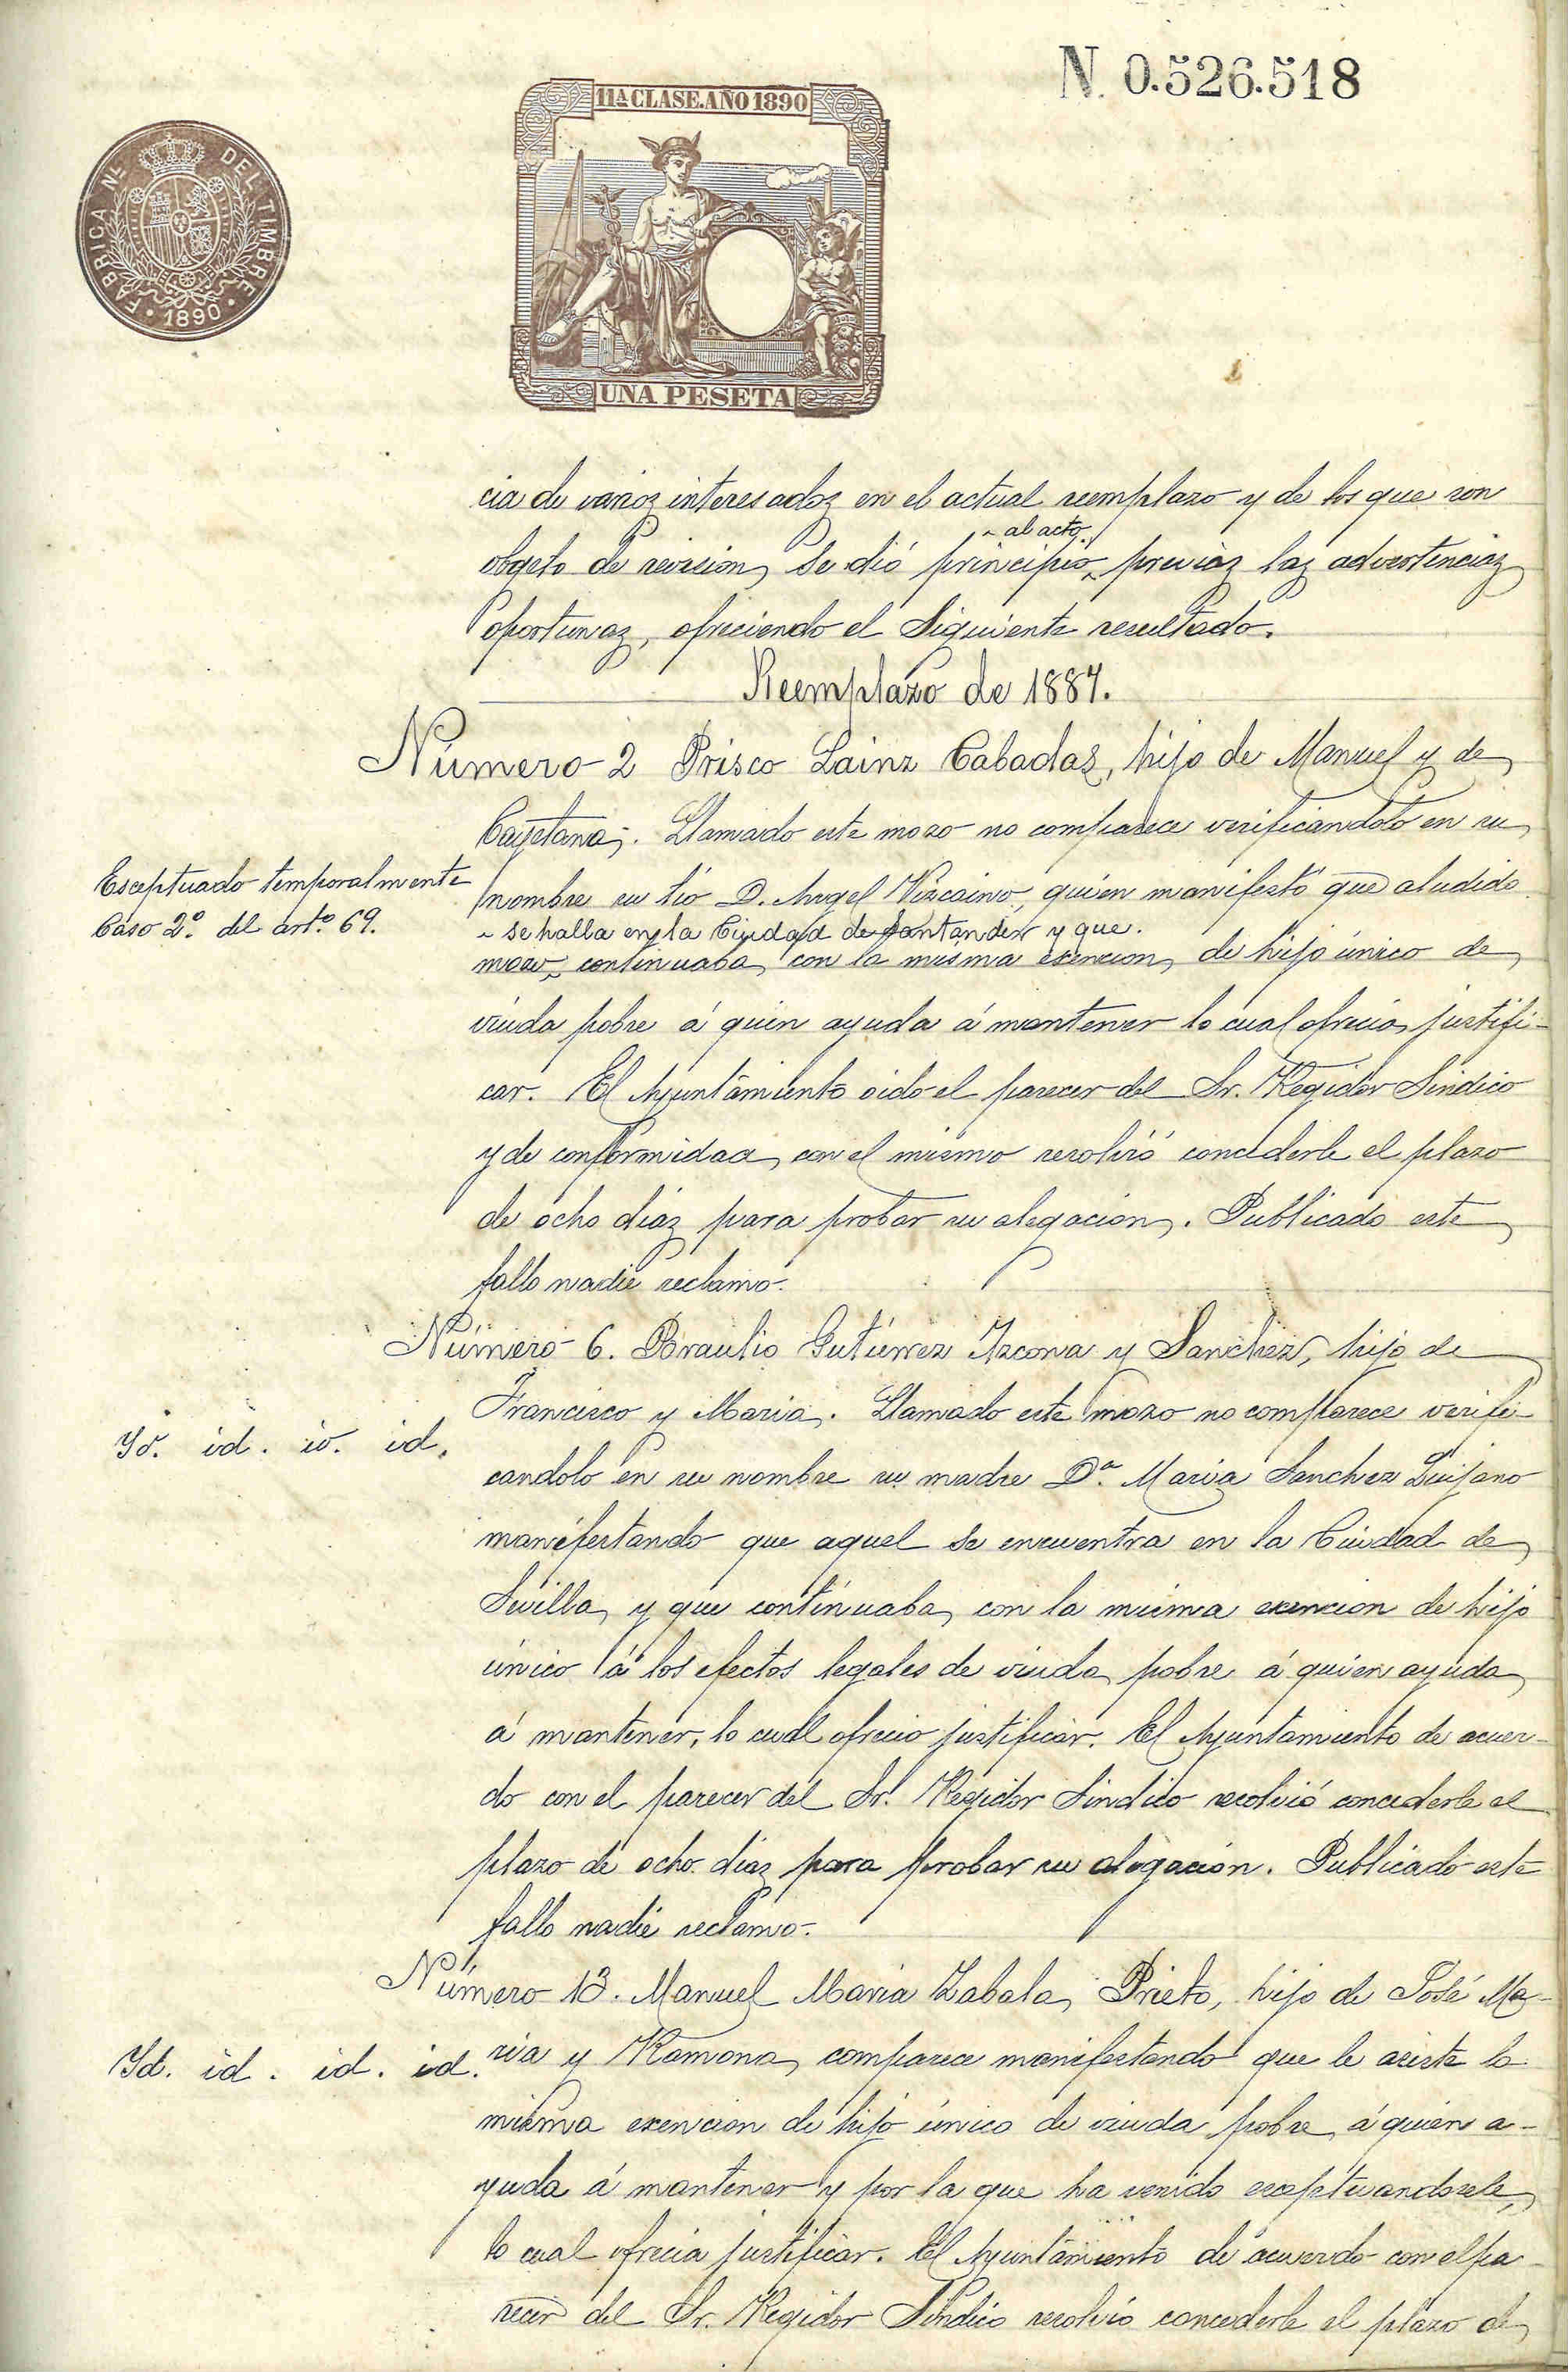 N. 0.526.518
11ª CLASE. AÑO 1890
FABRICA Nˡ DEL TIMBRE
· 1890 ·
UNA PESETA
cia de varios interesados en el actual reemplazo y de los que son
al acto
objeto de revision, se dió principio previas las advertencias
oportunas, ofreciendo el siguiente resultado.
Reemplazo de 1887.
Número 2 Prisco Lainz Cabadas, hijo de Manuel y de
Cayetana. Llamado este mozo no comparece verificandolo en su
Esceptuado temporalmente
Caso 2º. del artº 69.
nombre su tio D. Angel Vizcaino, quien manifestó que aludido
se halla en la Ciudad de Santander y que.
mozo continuaba con la misma exencion, de hijo único de
viuda pobre á quien ayuda á mantener lo cual ofrecia justifi-
car. El Ayuntamiento oido el parecer del Sr. Regidor Sindico
y de conformidad con el mismo resolvió concederle el plazo
de ocho dias para probar su alegacion. Publicado este
fallo nadie reclamó.
Número 6. Braulio Gutierrez Azcona y Sanchez, hijo de
Francisco y Maria. Llamado este mozo no comparece verifi-
Yd. id. id. id.
candolo en su nombre su madre Dª. Maria Sanchez Quijano
manifestando que aquel se encuentra en la Ciudad de
Sevilla, y que continuaba, con la misma exencion de hijo
único á los efectos legales de viuda pobre á quien ayuda
á mantener, lo cual ofrecio justificar. El Ayuntamiento de acuer-
do con el parecer del Sr. Regidor Sindico resolvió concederle el
plazo de ocho dias para probar su alegación. Publicado este
fallo nadie reclamo.
Número 13. Manuel Maria Zabala Prieto, hijo de José Ma-
Yd. id. id. id.
ria y Ramona, comparece manifestando que le asiste la
misma exencion de hijo único de viuda pobre á quien a-
yuda á mantener y por la que ha venido exceptuandosele,
lo cual ofrecia justificar. El Ayuntamiento de acuerdo con el pa-
recer del Sr. Regidor Sindico resolvio concederle el plazo de